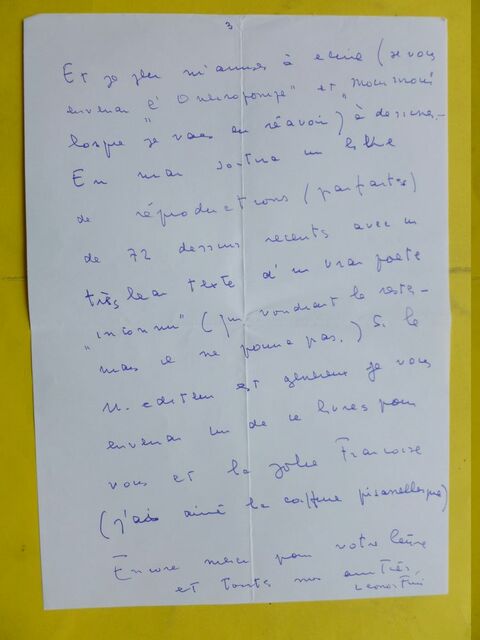 3
Et je peu m'amuser à ecrire (je vous
enverrai l'"Oneiropompe" et "Mourmour"
lorsque je vais en réavoir) à dessiner –
En mai sortira un livre
de réproductions (parfaites)
de 72 dessins recents avec un
très beau texte d'un vrai poete
"inconnu" (qui voudrait le rester –
mais il ne pourra pas.) Si le
M. editeur est genereux je vous
enverrai un de ce livres pour
vous et la jolie Françoise
(j'ais aimé la coiffure pisanellesque)
Encore merci pour votre lettre
et toutes mes amitiés,
Leonor Fini